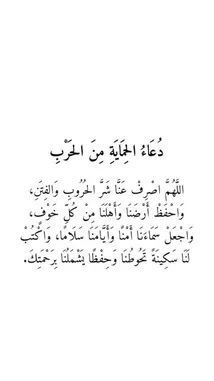 دُعَاءُ الحِمَايَةِ مِنَ الحَرْبِ
اللَّهُمَّ اصْرِفْ عَنَّا شَرَّ الحُرُوبِ وَالفِتَنِ،
وَاحْفَظْ أَرْضَنَا وَأَهْلَنَا مِنْ كُلِّ خَوْفٍ،
وَاجْعَلْ سَمَاءَنَا أَمْنًا وَأَيَّامَنَا سَلَامًا، وَاكْتُبْ
لَنَا سَكِينَةً تَحُوطُنَا وَحِفْظًا يَشْمَلُنَا بِرَحْمَتِكَ.